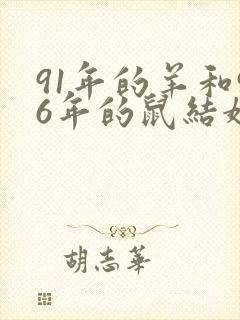 91年的羊和
6年的鼠結
胡志華